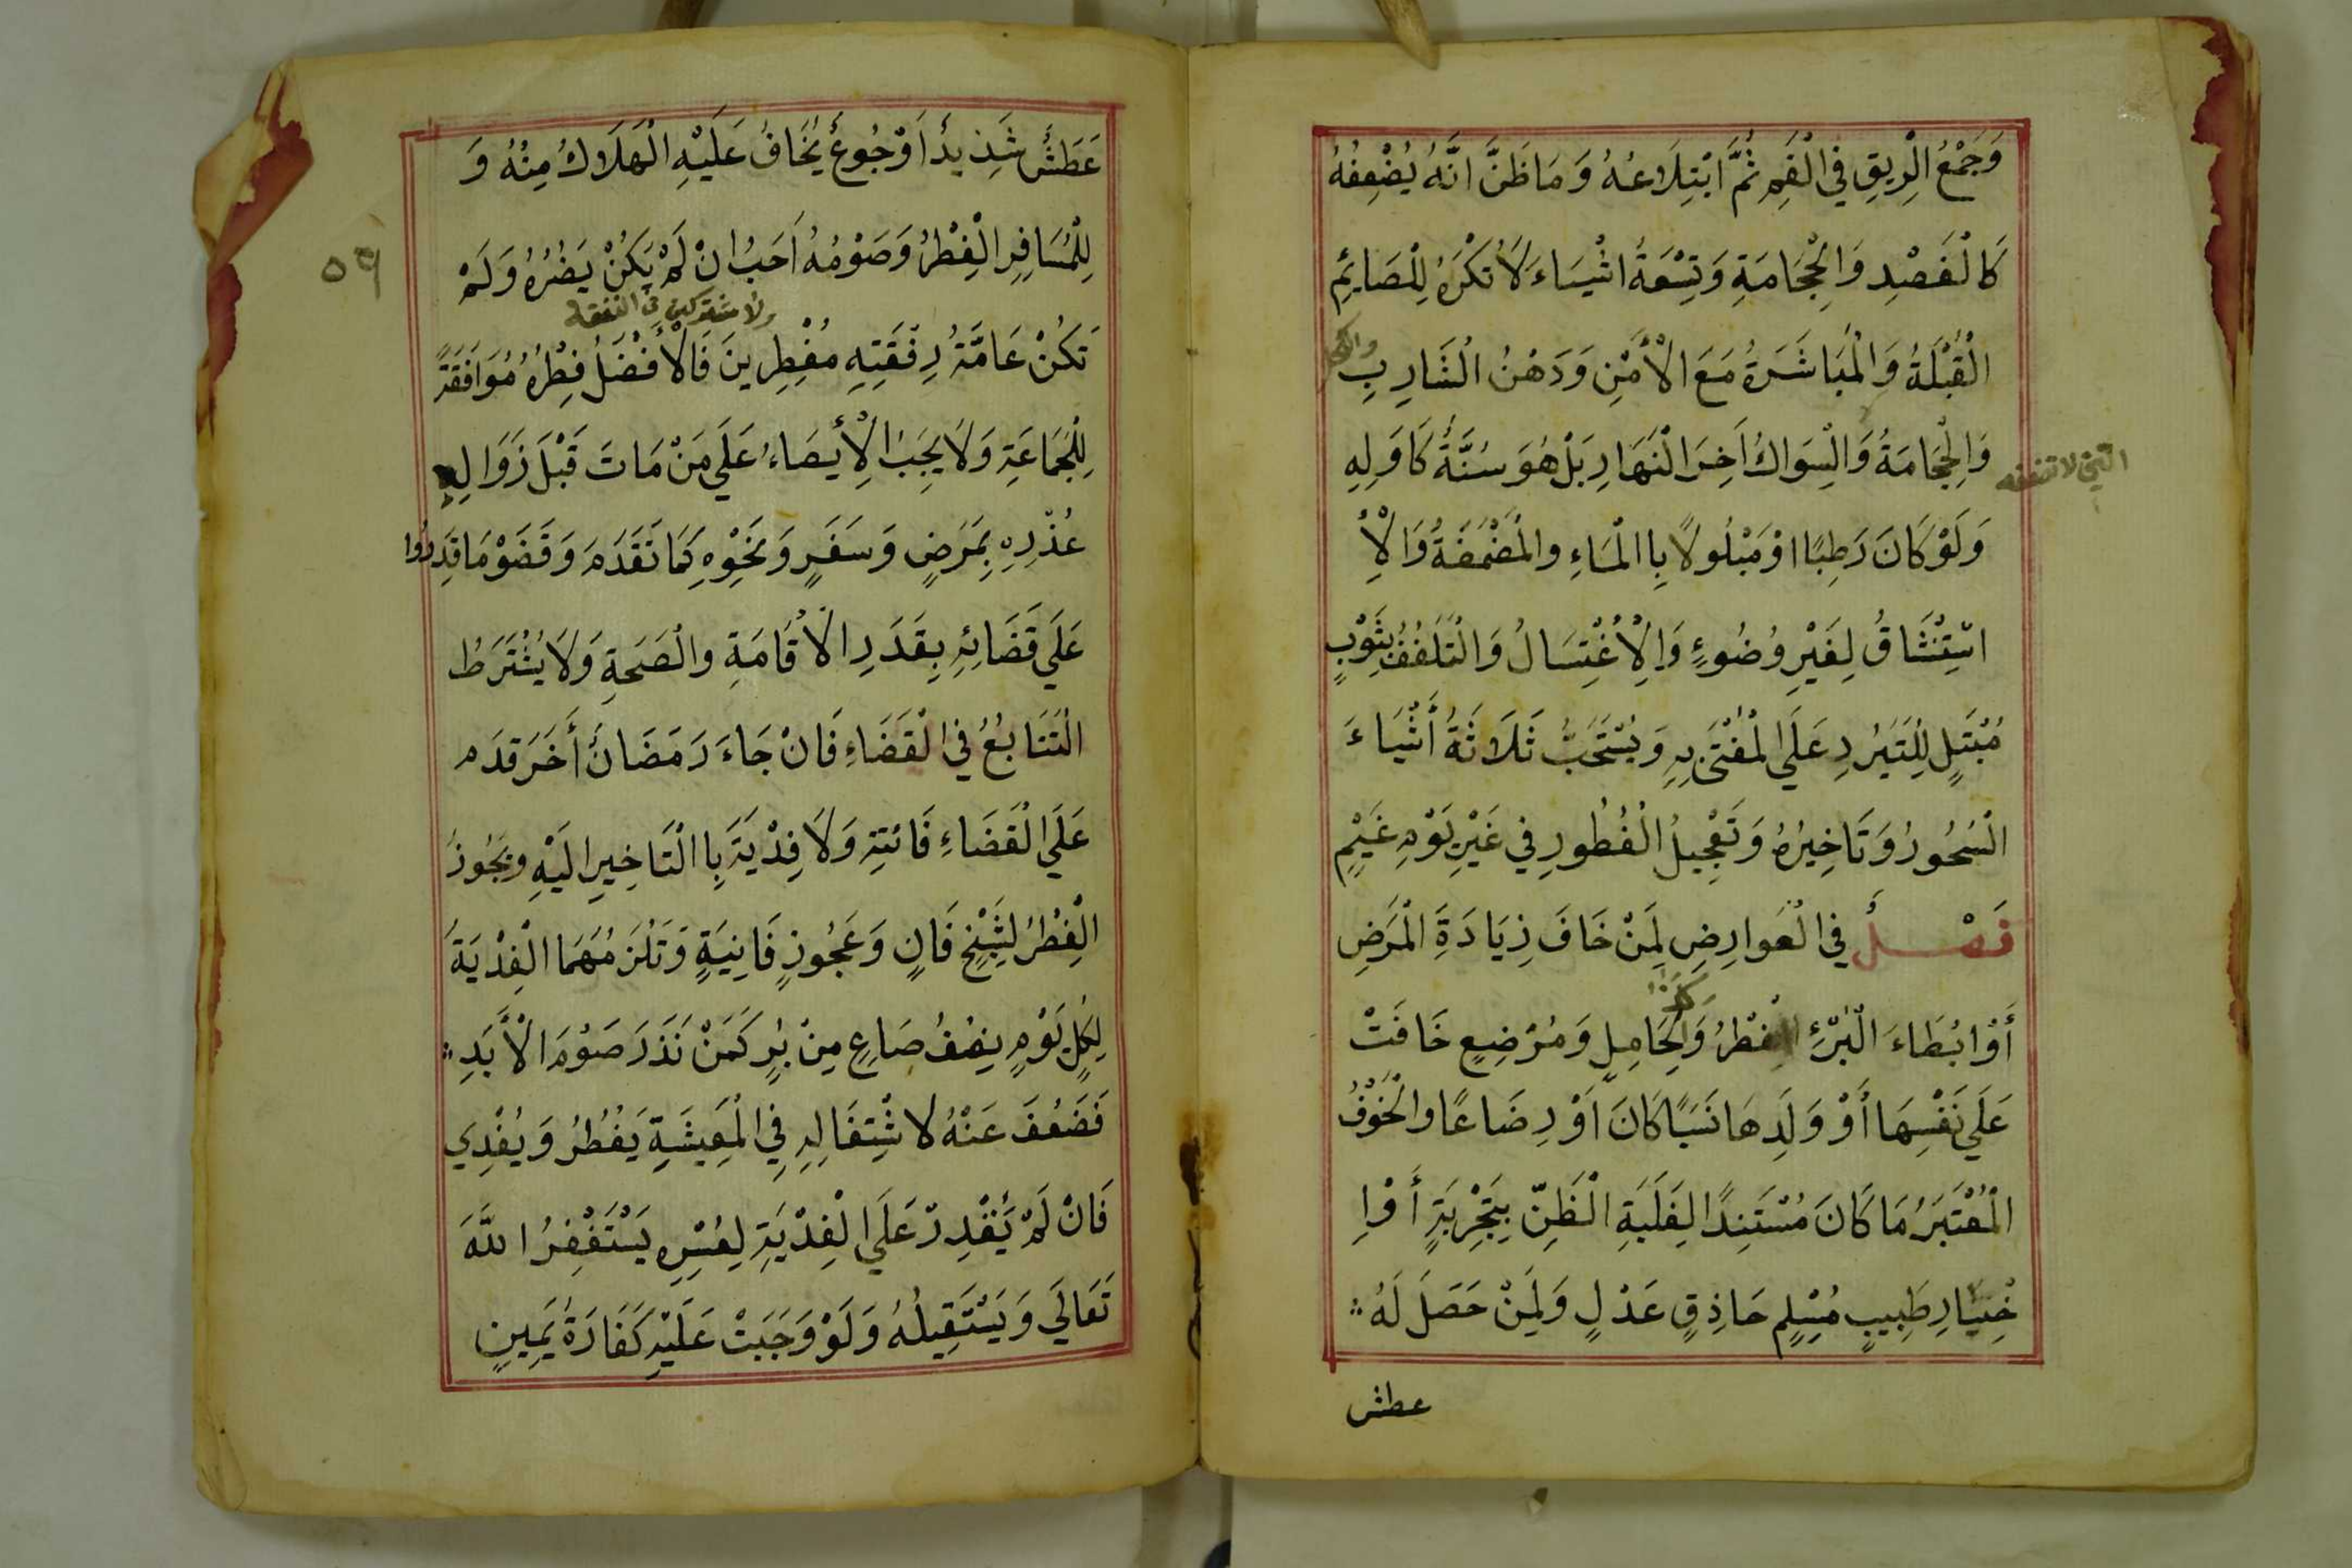 وَجَمْعُ الْرِيقِ فِي الْفَمِ ثُمَّ ابْتِلَاعُهُ وَمَا ظَنَّ انَّهُ يُضْعِفُهُ
كَالْفَصْدِ وَالْحِجَامَةِ وَتِسْعَةُ اشْيَاءَ لَا تُكْرَهُ لِلْصَائِمِ
الْقُبْلَةُ وَالْمُبَاشَرَةُ مَعَ الْأَمْنِ وَدَهْنُ الْشَارِبِ
وَالْحِجَامَةُ وَالْسِوَاكُ آخِرَ الْنَهَارِ بَلْ هُوَ سُنَّةٌ كَاوَلِهِ
وَلَوْ كَانَ رَطِبًا اوْ مَبْلُولًا بِاالْمَاءِ والْمَضْمَضَةُ وَالْاِ
اسْتِنْشَاقُ لِغَيْرِ وُضُوءٍ وَالْاِغْتِسَالُ وَالْتَلَفُفُ بِثَوْبٍ
مُبْتَلٍ لِلْتَبَرُدِ عَلَي الْمُفْتَى بِهِ وَيُسْتَحَبُّ ثَلَاثَةُ أَشْيَاءَ
الْسُحُورُ وَتَاخِيرُهُ وَتَعْجِيلُ الْفُطُورِ فِي غَيْرِ يَوْمِ غَيْمٍ
فَصْلٌ فِي الْعَوارِضِ لِمَنْ خَافَ زِيَادَةَ الْمَرَضِ
أَوْ ابُطَاءَ الْبُرْءِ الْفِطْرُ وَالْحَامِلِ وَمُرْضِعٍ خَافَتْ
عَلَي نَفْسِهَا أَوْ وَلَدِهَا نَسَبًا كَانَ اَوْ رِضَاعًا والْخَوْفُ
الْمُعْتَبَرُ مَا كَانَ مُسْتَنِدًا لِغَلَبَةِ الْظَنِّ بِتَجْرِبَةٍ أَوْاِ
خْبَارِ طَبِيبٍ مُسْلِمٍ حَاذِقٍ عَدْلٍ وَلِمَنْ حَصَلَ لَهُ
عطش
عَطَشٌ شَذِيدٌ أَوْ جُوعٌ يُخَافُ عَلَيْهِ الْهَلَاكُ مِنْهُ وَ
لِلْمُسَافِرِ الْفِطْرُ وَصَوْمُهُ اَحَبُ انْ لَمْ يَكُنْ يَضُرُهُ وَلَمْ
ولا مشتركين في النفقه
تَكُنْ عَامَّةُ رِفْقَتِهِ مُفْطِرِينَ فَالْأَفْضَلُ فِطْرُهُ مُوَافَقَةً
لِلْجَمَاعَةِ وَلَا يَجِبُ الْأِيصَاءُ عَلَي مَنْ مَاتَ قَبْلَ زَوَالِ
عُذْرِهِ بِمَرَضٍ وَسَفَرٍ وَنَحْوِهِ كَمَا تَقَدَمَ وَقَضَوْ مَا قَدِرُوا
عَلَي قَضَائِهِ بِقَدَرِ الْأقَامَةِ والْصَحَةِ وَلَا يُشْتَرَطُ
الْتَتَابُعُ فِي الْقَضَاءِ فَانْ جَاءَ رَمَضَانٌ أَخَرَ قدَم
عَلَي الْقَضَاءِ فَائتِهِ وَلَا فِدْيَةَ بِاالْتَاخِيرِ الَيْهِ ويَجُوزُ
الْفِطْرُ لِشَيْخٍ فَانٍ وَعَجُوزٍ فَانِيَةٍ وَتَلْزَمُهُمَا الْفِدْيَةُ
لِكُلِ يَوْمٍ نِصْفُ صَاعٍ مِنْ بُرٍ كَمَنْ نَذَرَ صَوْمَ الْأَبَدِ
فَضَعُفَ عَنْهُ لاشْتِغَالِهِ فِي الْمَعِيشَةِ يَفْطُرُ وَيُفْدِي
فَانْ لَمْ يَقْدِرْ عَلَي الْفِدْيَةِ لِعُسْرِهِ يَسْتَغْفِرُ اللَّهَ
تَعَالَي وَيَسْتَقِيلُهُ وَلَوْ وَجَبَتْ عَلَيْهِ كَفَارَةُ يَمِينٍ
٥٩